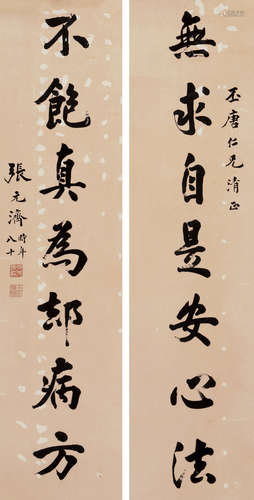 無求自是安心法
丕唐仁兄清正
不飽真為卻病方
張元濟
時年八十